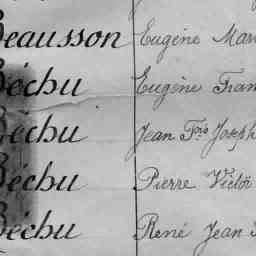 Beausson Eugène Mari
Béchu Eugène Fran
Béchu Jean Fçois Joseph
Béchu Pierre Victor
Béchu René Jean